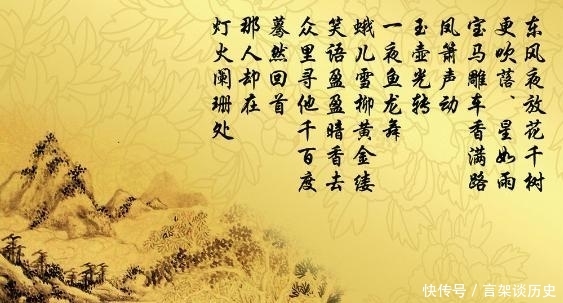 东风夜放花千树
更吹落、星如雨
宝马雕车香满路
凤箫声动
玉壶光转
一夜鱼龙舞
蛾儿雪柳黄金缕
笑语盈盈暗香去
众里寻他千百度
蓦然回首
那人却在
灯火阑珊处
快传号/言架谈历史